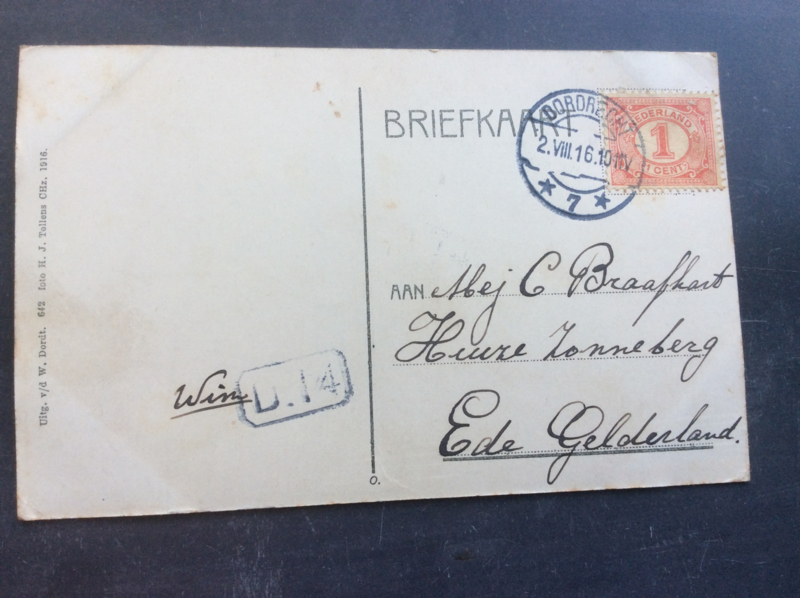 BRIEFKAART
DORDRECHT
2.VIII.16.10
7
NEDERLAND
1
1 CENT
AAN Mej C Braafhart
Huize Zonneberg
Ede Gelderland.
Wim
D.14
O.
Uitg. v/d W. Dordt. 642 foto H. J. Tollens CHz. 1916.